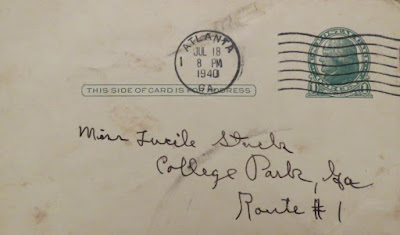 ATLANTA
JUL 18
1 8 PM
1940
GA.
THIS SIDE OF CARD IS FOR ADDRESS
Miss Lucile
College Park, Ga
Route #1